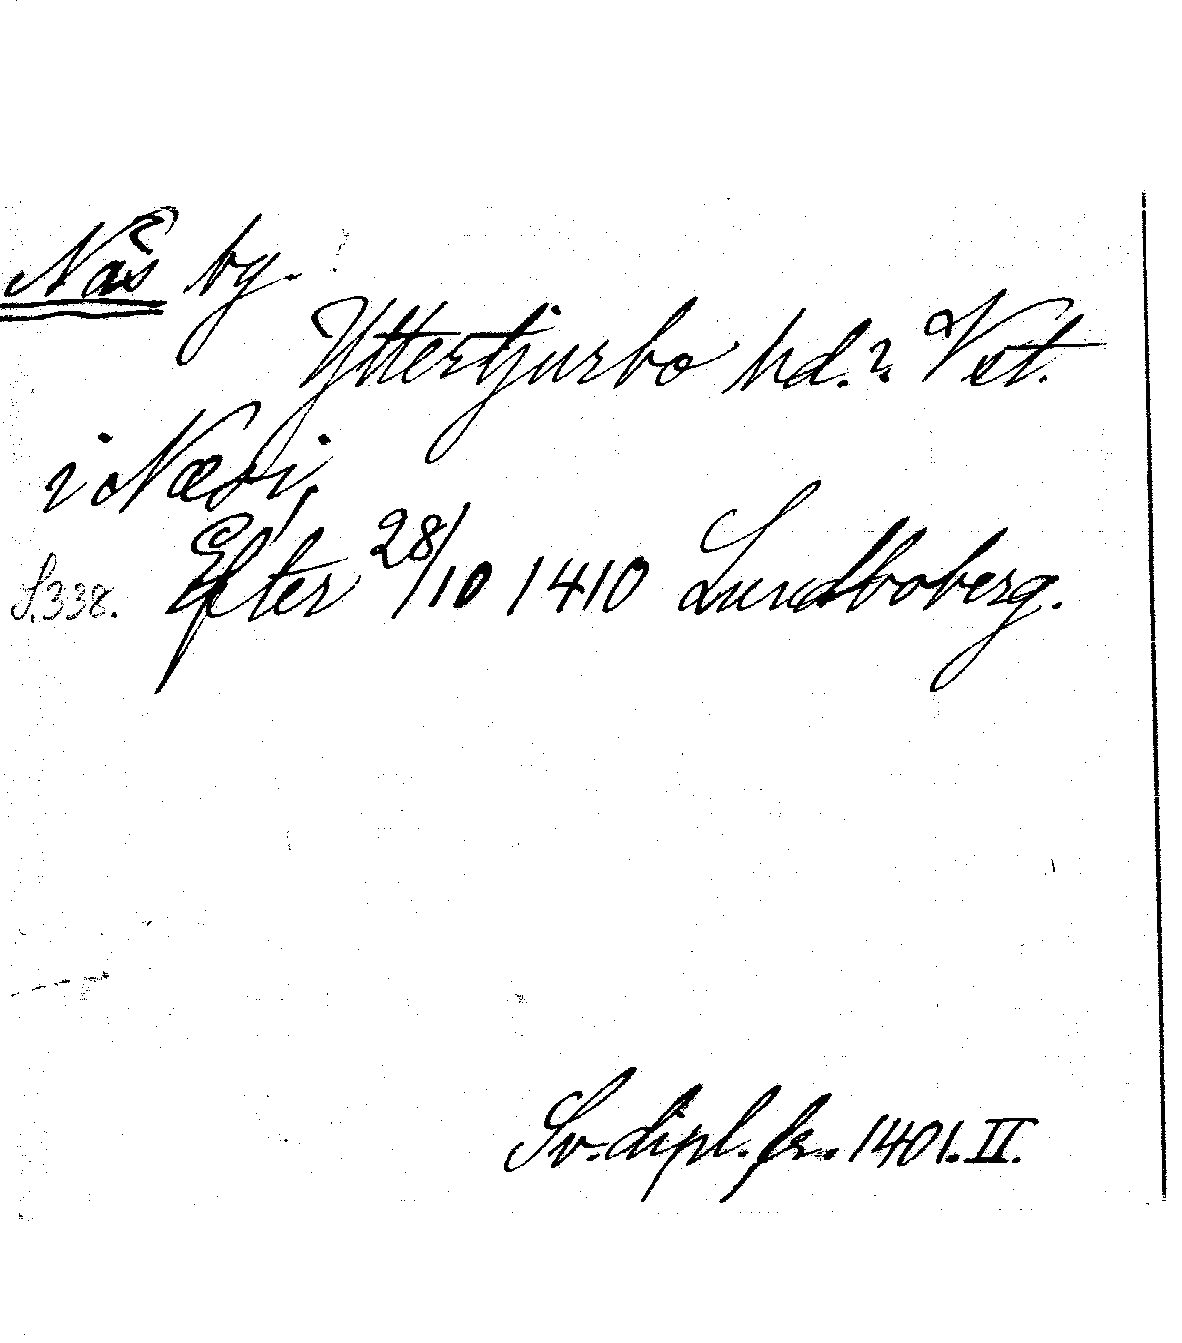 Näs by.
Yttertjurbo hd.? Vst.
i Næsi,
S.338. Efter 28/10 1410 Lundboberg.
Sv. dipl. fr. 1401. II.